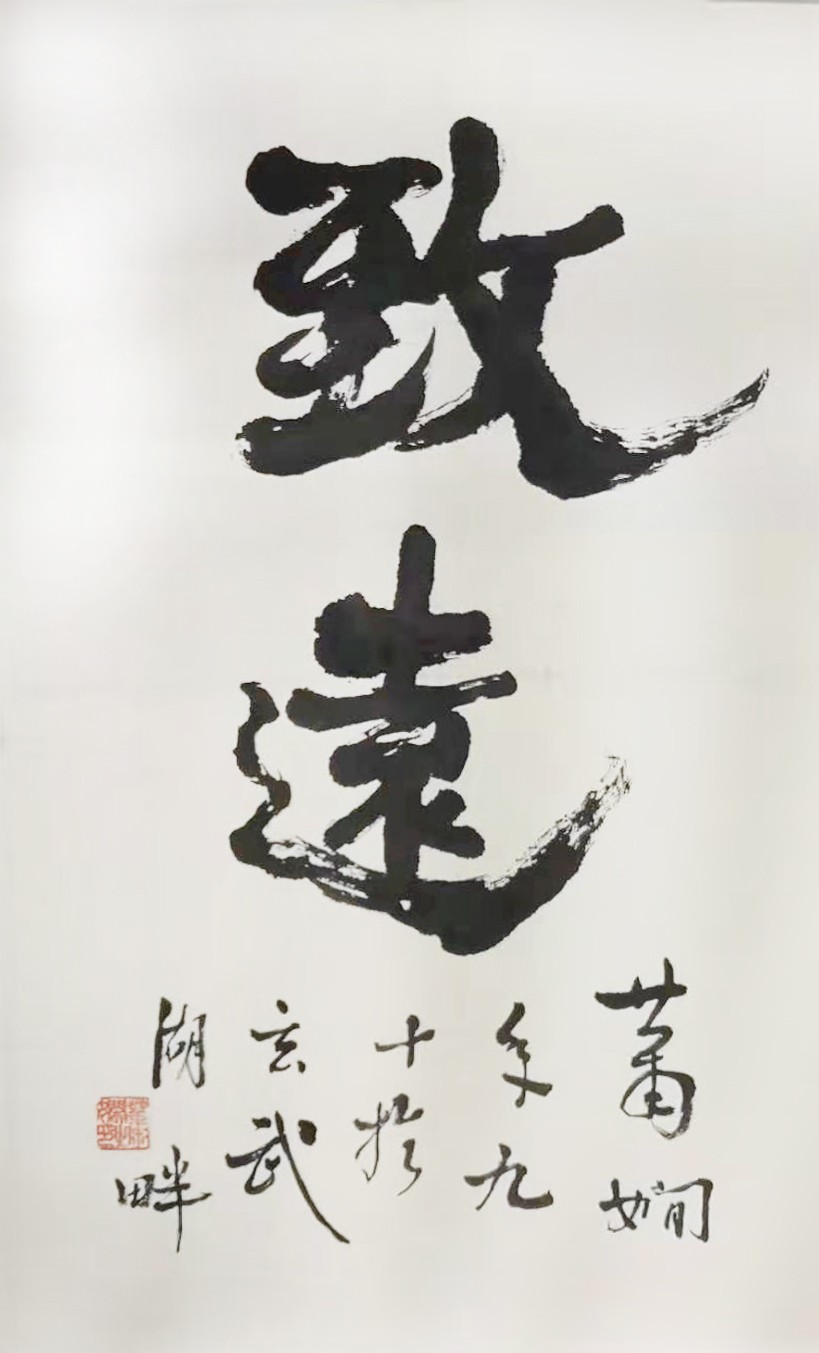 致遠
蕭嫻
年九
十於
玄武
湖畔